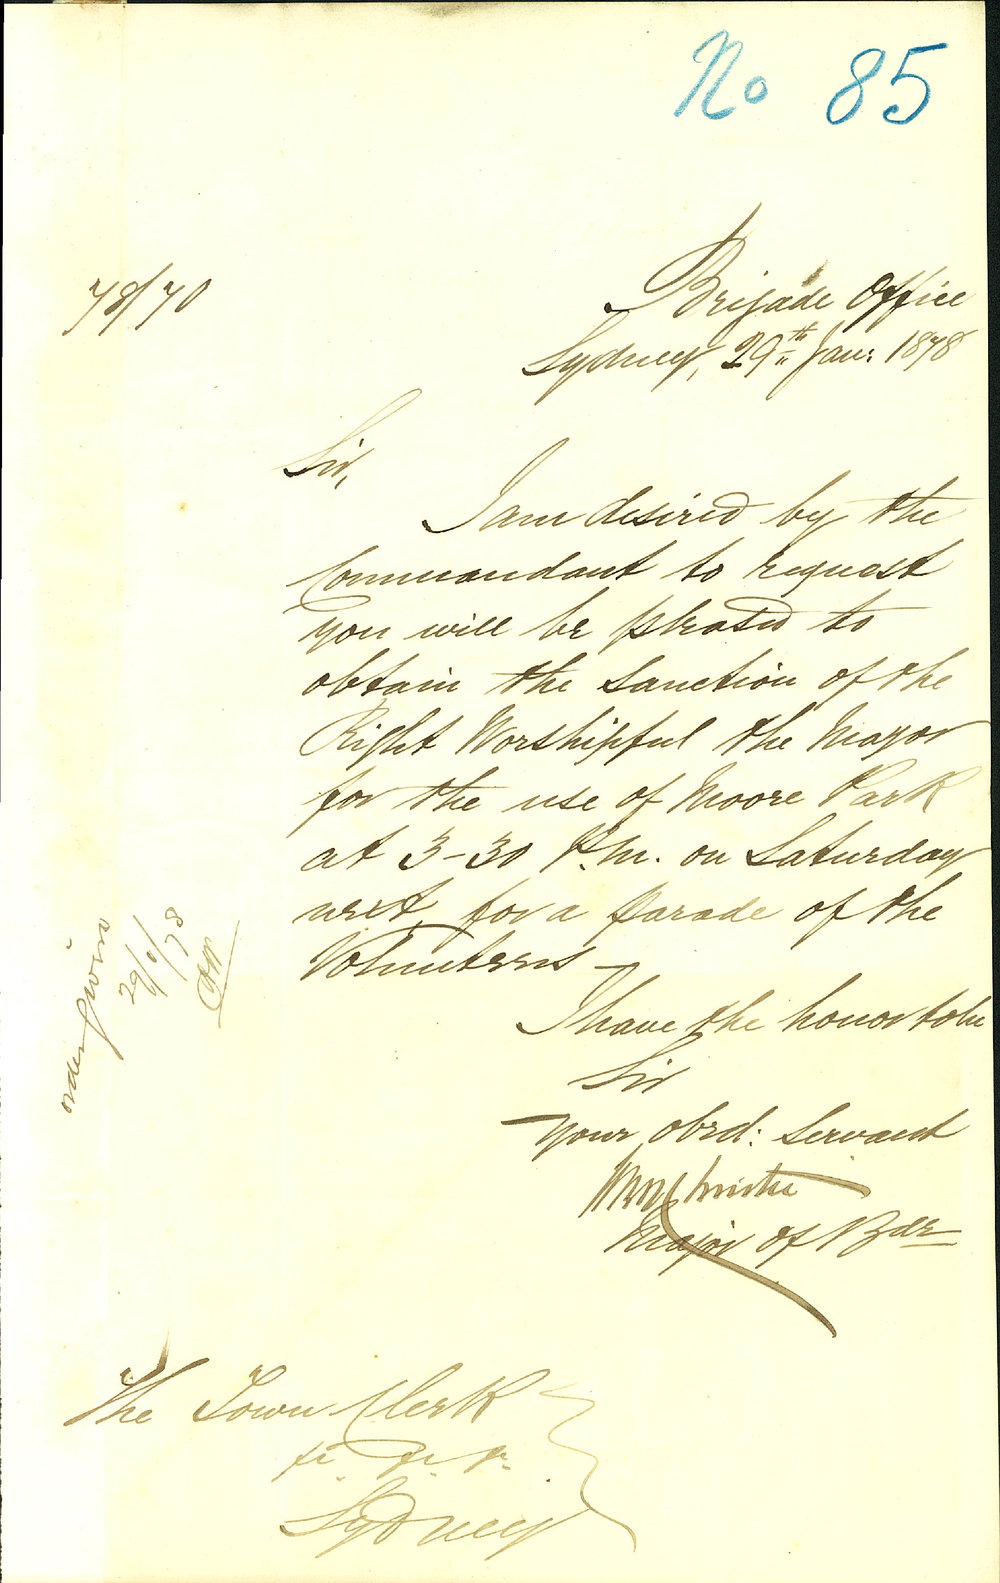 No 85
78/70
Brigade Office
Sydney, 29th Jan: 1878
Sir,
I am desired by the
Commandant to request
you will be pleased to
obtain the sanction of the
Right Worshipful the Mayor
for the use of Moore Park
at 3-30 P.M. on Saturday
next, for a parade of the
Volunteers —
I have the honor to be
Sir
Your obed: Servant
Christie
Major of Bde
order given
29/1/78
The Town Clerk
&c. &c. &c.
Sydney